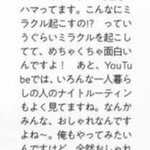 ハマってます。こんなにミ
ラクル起こすの!?　ってい
うぐらいミラクルを起こし
てて、めちゃくちゃ面白い
んですよ！　あと、YouTu
beでは、いろんな一人暮ら
しの人のナイトルーティン
もよく見てますね。なんか
みんな、おしゃれなんです
よね〜。俺もやってみたい
んですけど、全然おしゃれ